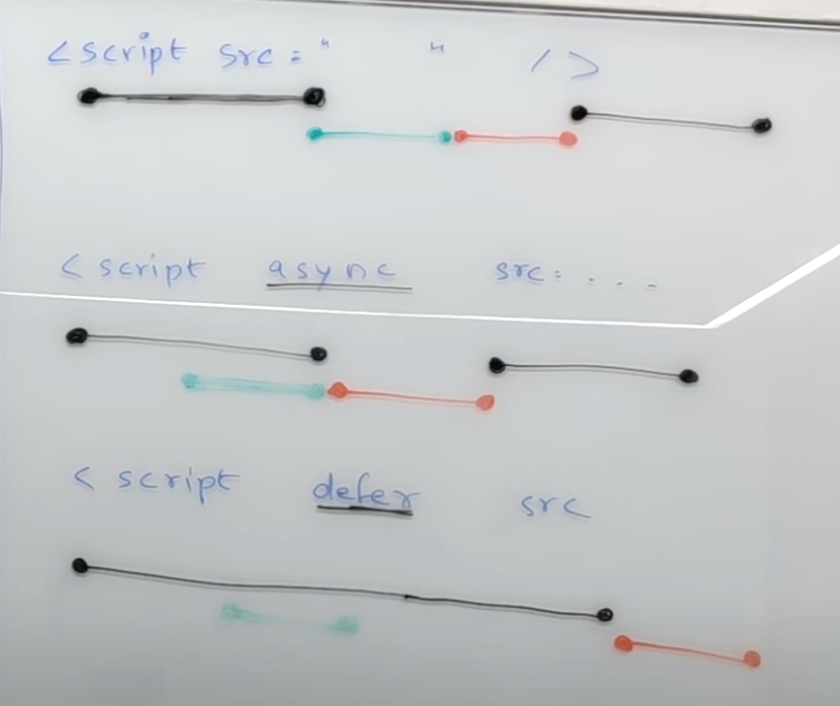 <script src="   " />
<script async src=....
<script defer src